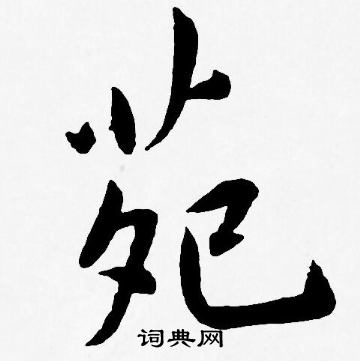 苑
词典网